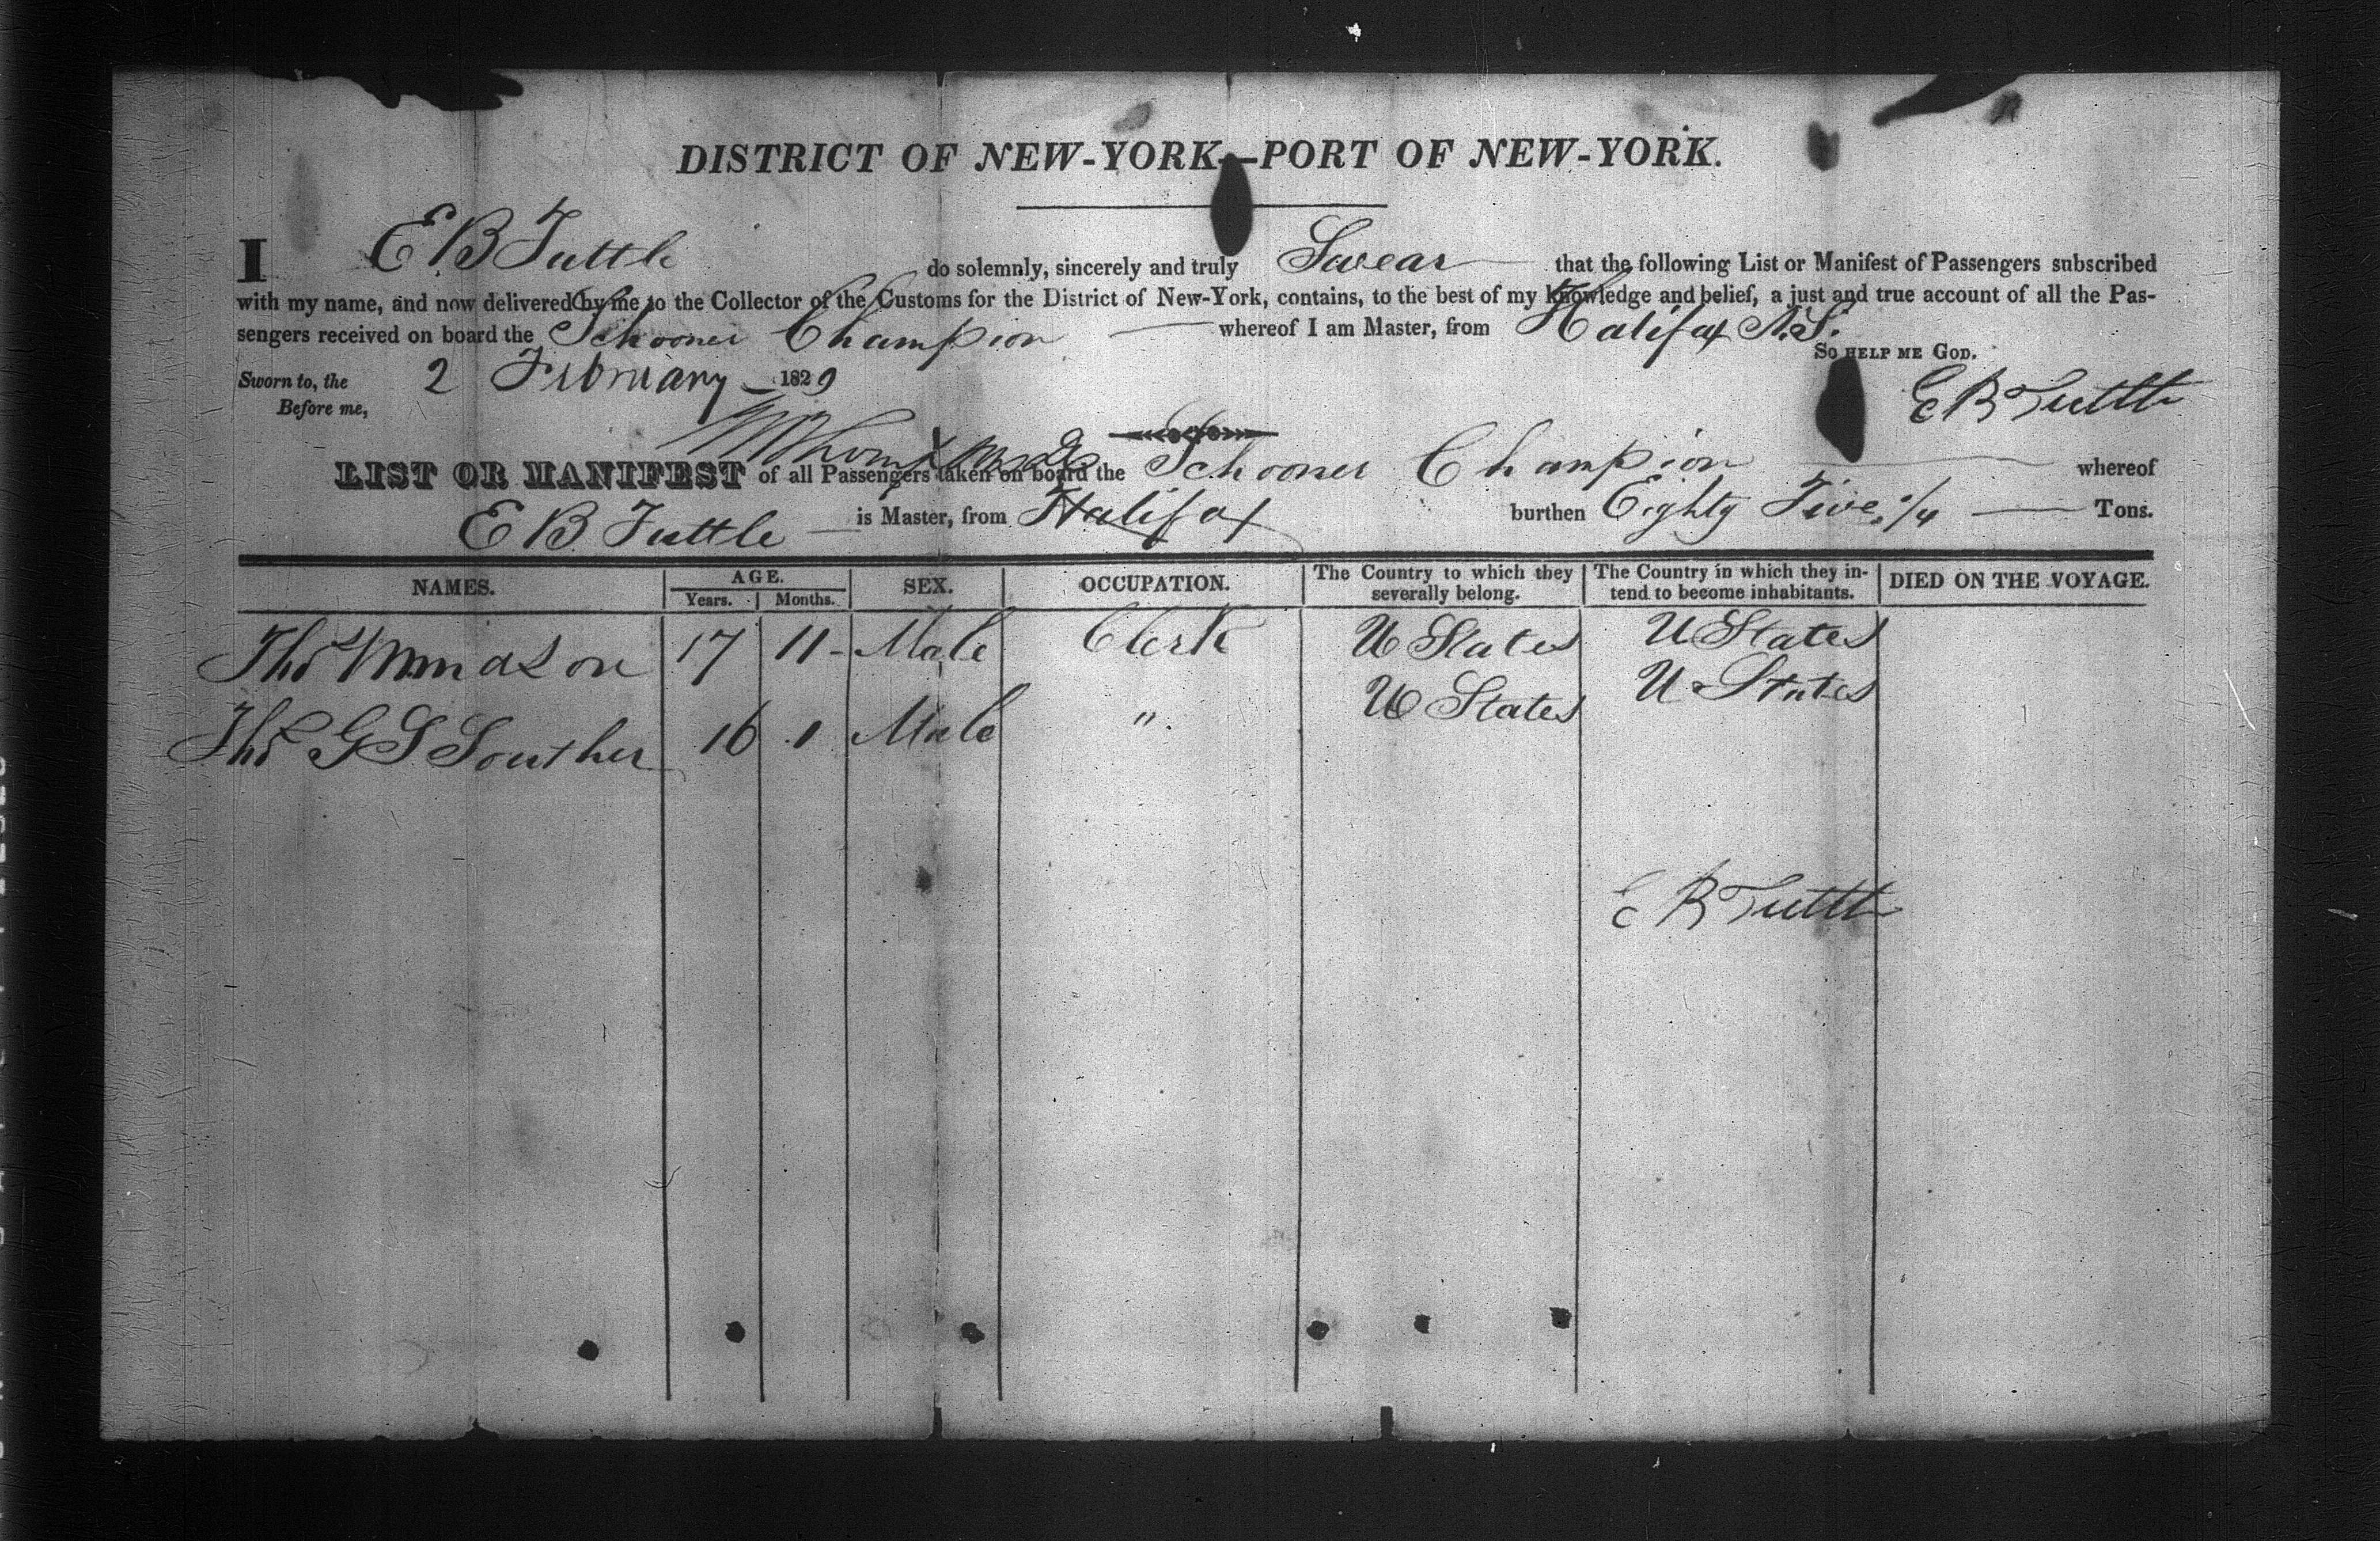 DISTRICT OF NEW-YORK—PORT OF NEW-YORK.
I E B Tuttle do solemnly, sincerely and truly Swear that the following List or Manifest of Passengers subscribed
with my name, and now delivered by me to the Collector of the Customs for the District of New-York, contains, to the best of my knowledge and belief, a just and true account of all the Pas-
sengers received on board the Schooner Champion whereof I am Master, from Halifax N.S.
So help me God.
Sworn to, the 2 February 1829
Before me,
E B Tuttle
LIST OR MANIFEST of all Passengers taken on board the Schooner Champion whereof
E B Tuttle is Master, from Halifax burthen Eighty Five 1/4 Tons.
NAMES. AGE. Years. Months. SEX. OCCUPATION. The Country to which they severally belong. The Country in which they in-tend to become inhabitants. DIED ON THE VOYAGE.
Thos 17 11 Male Clerk U States U States
Thos G S Souther 16 1 Male " U States U States
E B Tuttle